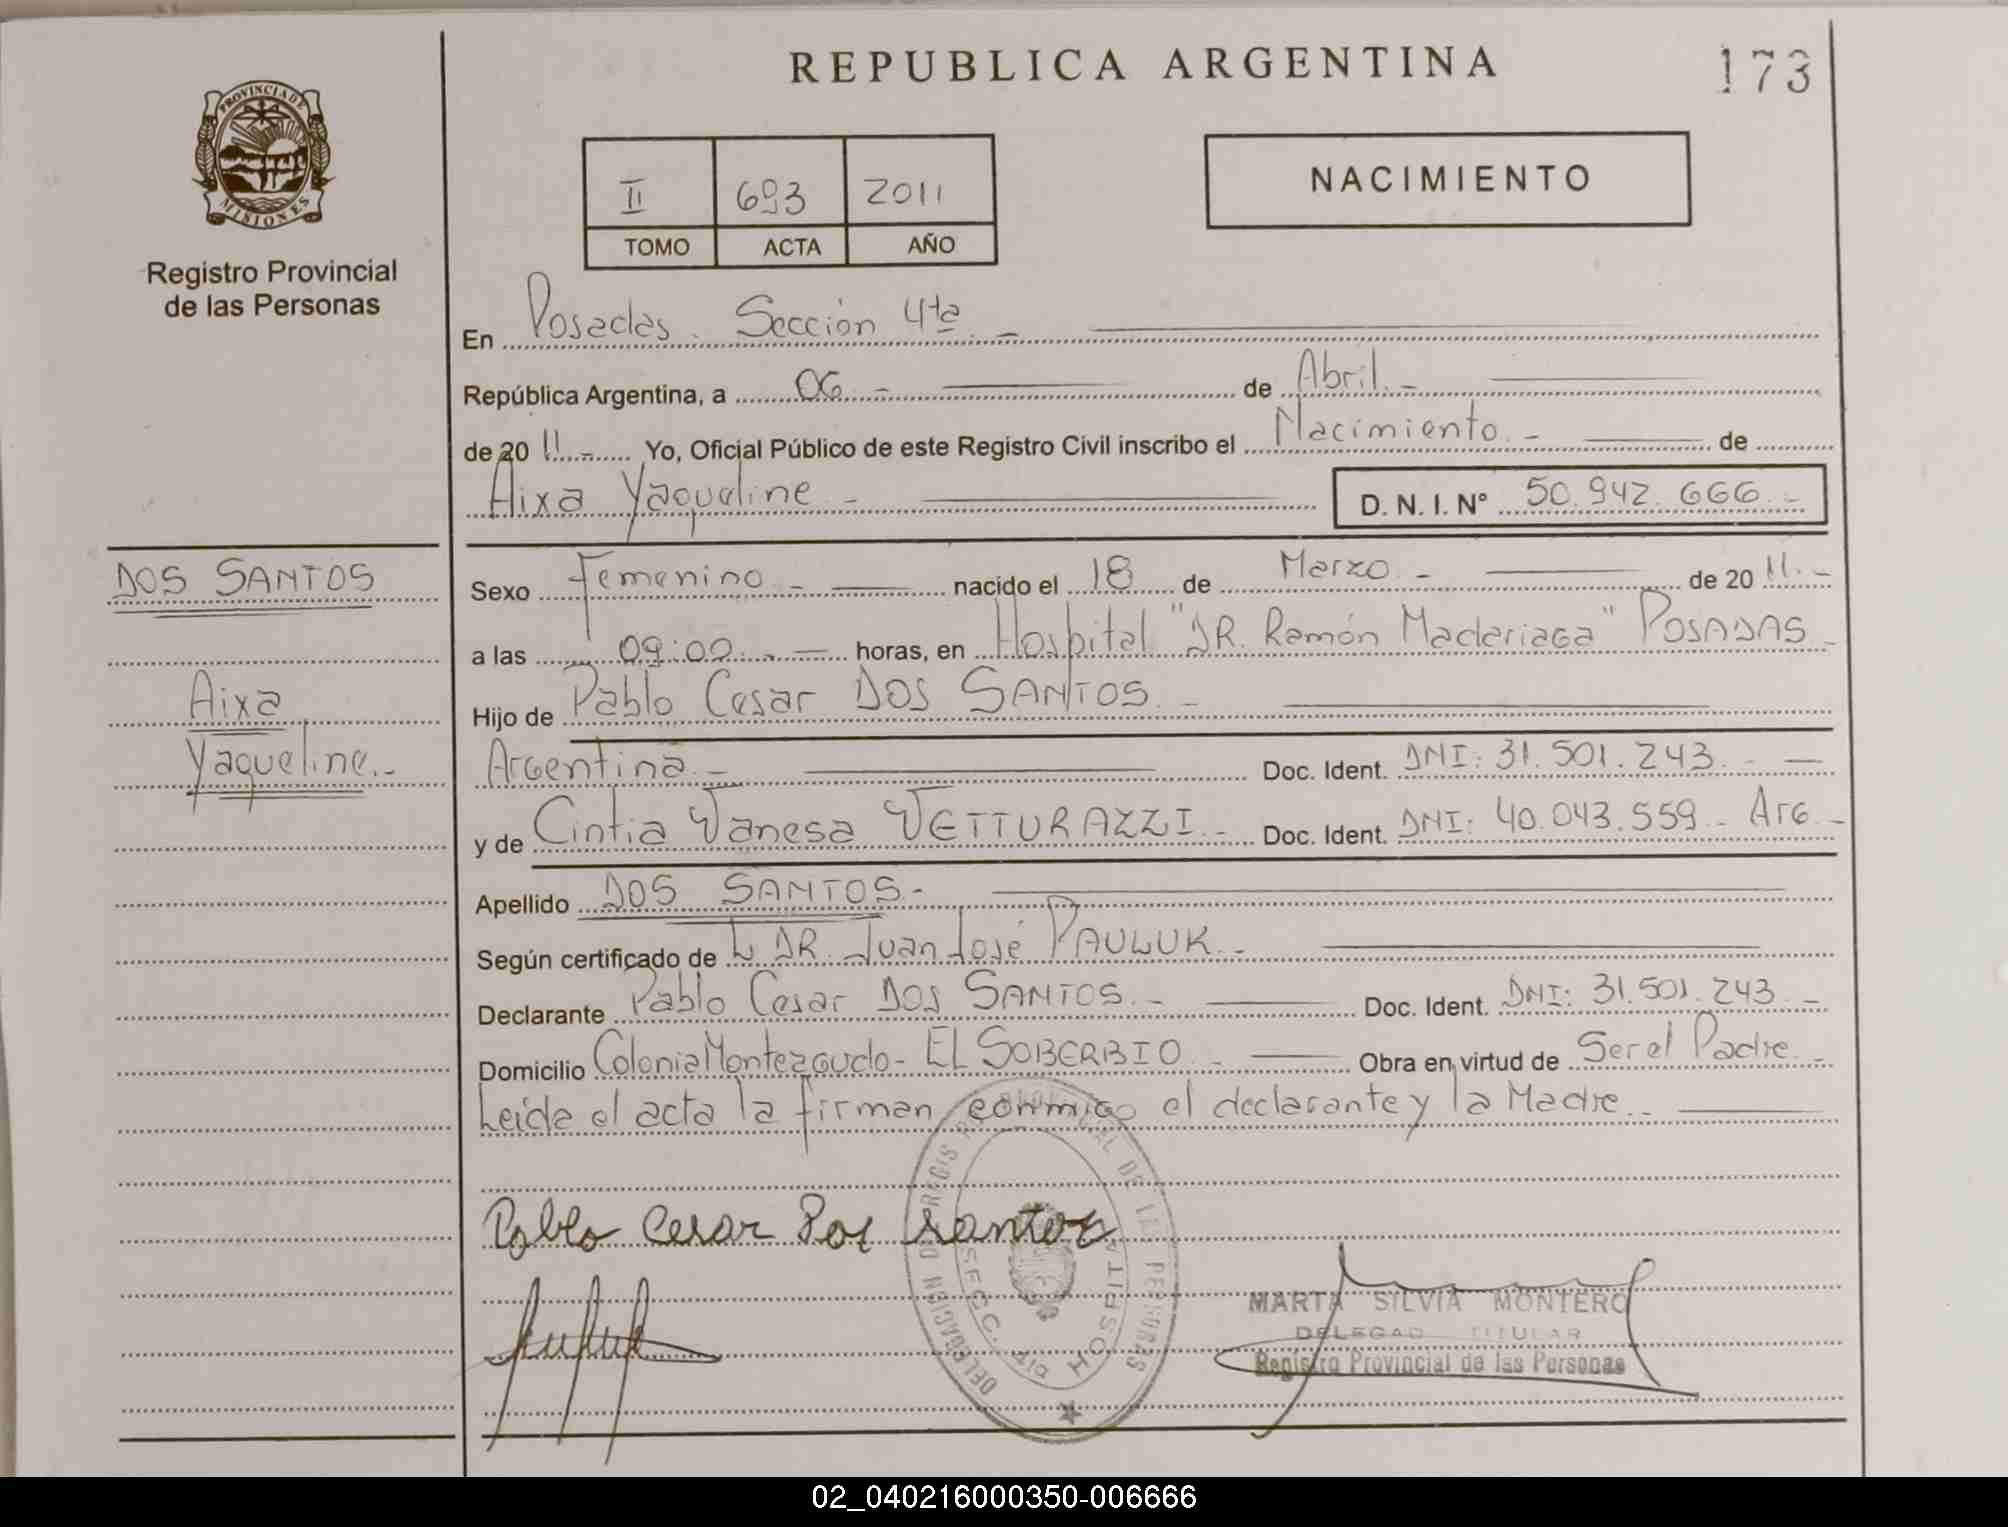 REPUBLICA ARGENTINA
173
PROVINCIA DE
MISIONES
Registro Provincial
de las Personas
II 693 2011
TOMO ACTA AÑO
NACIMIENTO
En Posadas. Sección 4ta. -
República Argentina, a 06 - de Abril. -
de 2011.- Yo, Oficial Público de este Registro Civil inscribo el Nacimiento. - de
Aixa Yaqueline - D. N. I. Nº 50.942.666. -
DOS SANTOS
Aixa
Yaqueline.-
Sexo Femenino - nacido el 18 de Marzo - de 2011. -
a las 09:00. - horas, en Hospital "DR. Ramón Madariaga" POSADAS -
Hijo de Pablo Cesar DOS SANTOS. -
Argentina. - Doc. Ident. DNI: 31.501.243. -
y de Cintia Vanesa VETTURAZZI. - Doc. Ident. DNI: 40.043.559 - Arg -
Apellido DOS SANTOS.-
Según certificado de L DR. Juan José PAULUK. -
Declarante Pablo Cesar DOS SANTOS. - Doc. Ident. DNI: 31.501.243 -
Domicilio Colonia Monteagudo - EL SOBERBIO. - Obra en virtud de Ser el Padre. -
Leida el acta la firman conmigo el declarante y la Madre.
Pablo Cesar Dos Santos
DELEGACION DEL REGISTRO PROVINCIAL DE LAS PERSONAS
SECC. 4ta HOSPITAL
MARTA SILVIA MONTERO
DELEGADA TITULAR
Registro Provincial de las Personas
02_040216000350-006666